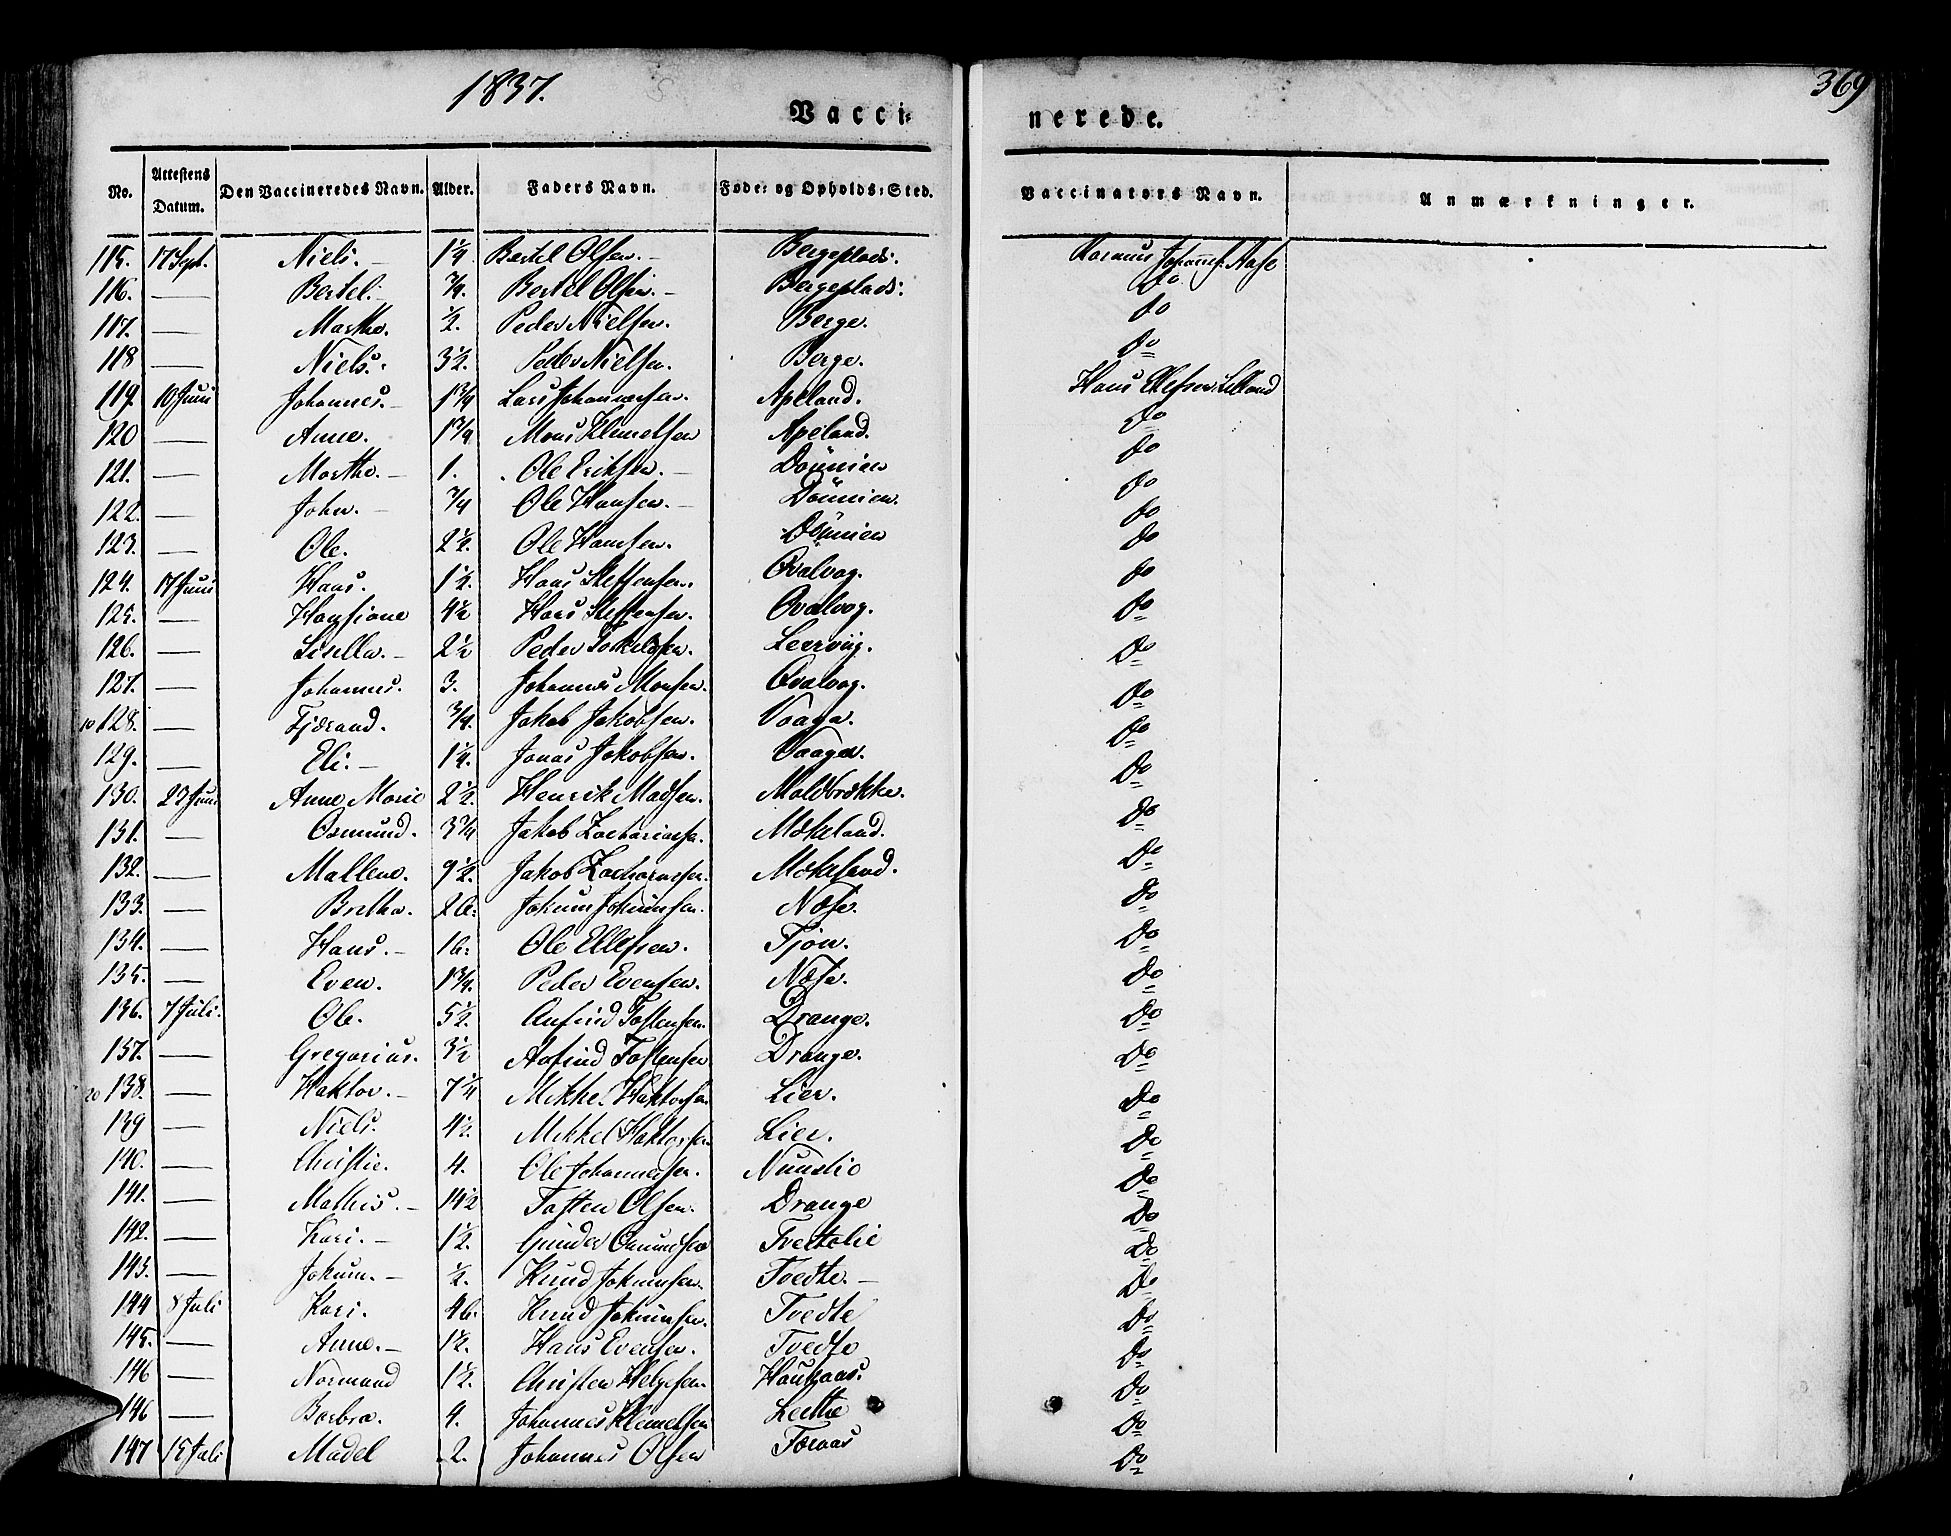 1837.
369
Vacci-
nerede.
No. Attestens Datum. Den Vaccineredes Navn. Alder. Faders Navn. Føde- og Opholds-Sted. Vaccinators Navn. Anmærkninger.
115. 17 Sept. Niels. — 1¼ Bertel Olsen. — Bergeplads. Rasmus Johannes. Aase
116. — Bertel. — ¾. Bertel Olsen. — Bergeplads. Do
117. — Marthe. ½. Peder Nielsen. Berge. Do
118 — Niels. 3½. Peder Nielsen. Berge. Do
119. 10 Juni Johannes. — 1¾ Lars Johannesen. Apeland. Hans Ellefsen
120 — Anne. 1¾ Mons Klemetsen Apeland. Do
121. — Marthe. — 1. Ole Eriksen. — Do
122. — John. — ¾ Ole Hansen. — Do
123. — Ole. 2½. Ole Hansen. Do
124. 17 Juni Hans. 1½. Hans Steffensen. Qvalvog. Do
125. — Hansiane 4½ Hans Steffensen. Qvalvog. Do
126. — Sisella. — 2½ Peder Leerviig. Do
127. — Johannes. 3. Johannes Monsen. Qvalvog. Do
10 128. — Tjærand. ¾. Jakob Jakobsen. Vaaga. Do
129. — Eli. — 1¼. Jonas Jakobsen. Vaagen. Do
130. 23 Juni Anne Marie 2½. Henrik Madsen. Moldbrække. Do
131. — Osmund. 3¾ Jakob Zachariasen. Mækeland. Do
132. — Mallene. 9½. Jakob Zachariasen. Mækeland. Do
133. — Bretha. 26. Jokum Jokumsen. Næse. Do
134. — Hans. — 16. Ole Ellefsen. Tjøn. Do
135. — Even. 1¾. Peder Evensen. Næse. Do
136. 7 Juli. Ole. 5½. Anfind Tostensen. Drange. Do
137. — Gregorius. 3½ Anfind Tostensen Drange. Do
20 138. — Haktor. — 7¼ Mikkel Haktorsen Lier. Do
139 — Niels. 4½. Mikkel Haktorsen Lier. Do
140. — Christie. 4. Ole Johannesen. Nunslie Do
141. — Mathis. — 14½ Tosten Olsen. Drange Do
142. — Kari. — 1½. Gunder Osmundsen Tveitelie Do
143. — Jokum. — ½. Knud Jokumsen. Tvedte. — Do
144 8 Juli Kari. 46. Knud Jokumsen. Tvedte Do
145. — Anne. — 1½. Hans Evensen. Tvedte Do
146 — Normand 1½. Christen Helgesen. Haugaas. Do
146 — Barbra. 4. Johannes Klemetsen Leethe Do
147 15 Juli Madel 2. Johannes Olsen Toraas Do